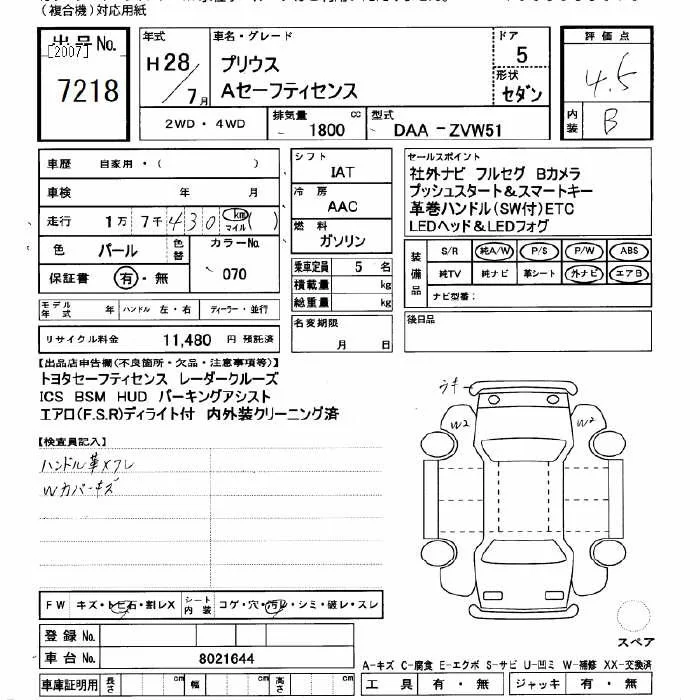 (複合機)対応用紙
出品No. [2007] 7218
年式 H28/7月
車名・グレード プリウス Aセーフティセンス
ドア 5
形状 セダン
評価点 4.5
内装 B
2WD・4WD
排気量 1800 cc
型式 DAA-ZVW51
車歴 自家用・( )
車検 年 月
走行 1万7千430 km マイル ( )
色 パール 色替 カラーNo. 070
保証書 有・無
モデル年式 年 ハンドル 左・右 ディーラー・並行
リサイクル料金 11,480 円 預託済
シフト IAT
冷房 AAC
燃料 ガソリン
乗車定員 5 名
積載量 kg
総重量 kg
名変期限 月 日
セールスポイント
社外ナビ フルセグ Bカメラ
プッシュスタート&スマートキー
革巻ハンドル(SW付)ETC
LEDヘッド&LEDフォグ
装備品 S/R 純A/W P/S P/W ABS
純TV 純ナビ 革シート 外ナビ エアB
ナビ型番:
後日品
【出品店申告欄(不良箇所・欠品・注意事項等)】
トヨタセーフティセンス レーダークルーズ
ICS BSM HUD パーキングアシスト
エアロ(F.S.R)ディライト付 内外装クリーニング済
【検査員記入】
ハンドル革スレ
Wカバーキズ
うキー
W2 W2
FW キズ・トビ石・割レX シート内装 コゲ・穴・汚レ・シミ・破レ・スレ
登録No.
車台No. 8021644
車庫証明用 長さ cm 幅 cm 高さ cm
スペア
A-キズ C-腐食 E-エクボ S-サビ U-凹ミ W-補修 XX-交換済
工具 有・無 ジャッキ 有・無